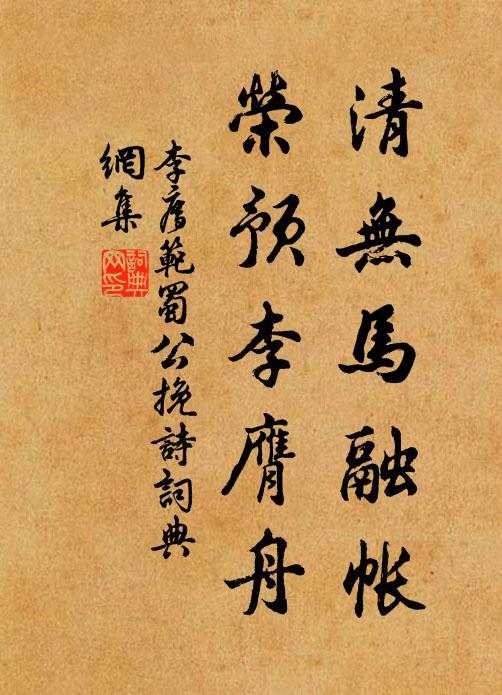 清無馬融帳
榮預李膺舟
李廌範蜀公挽詩詞典
網集
詞典
网印